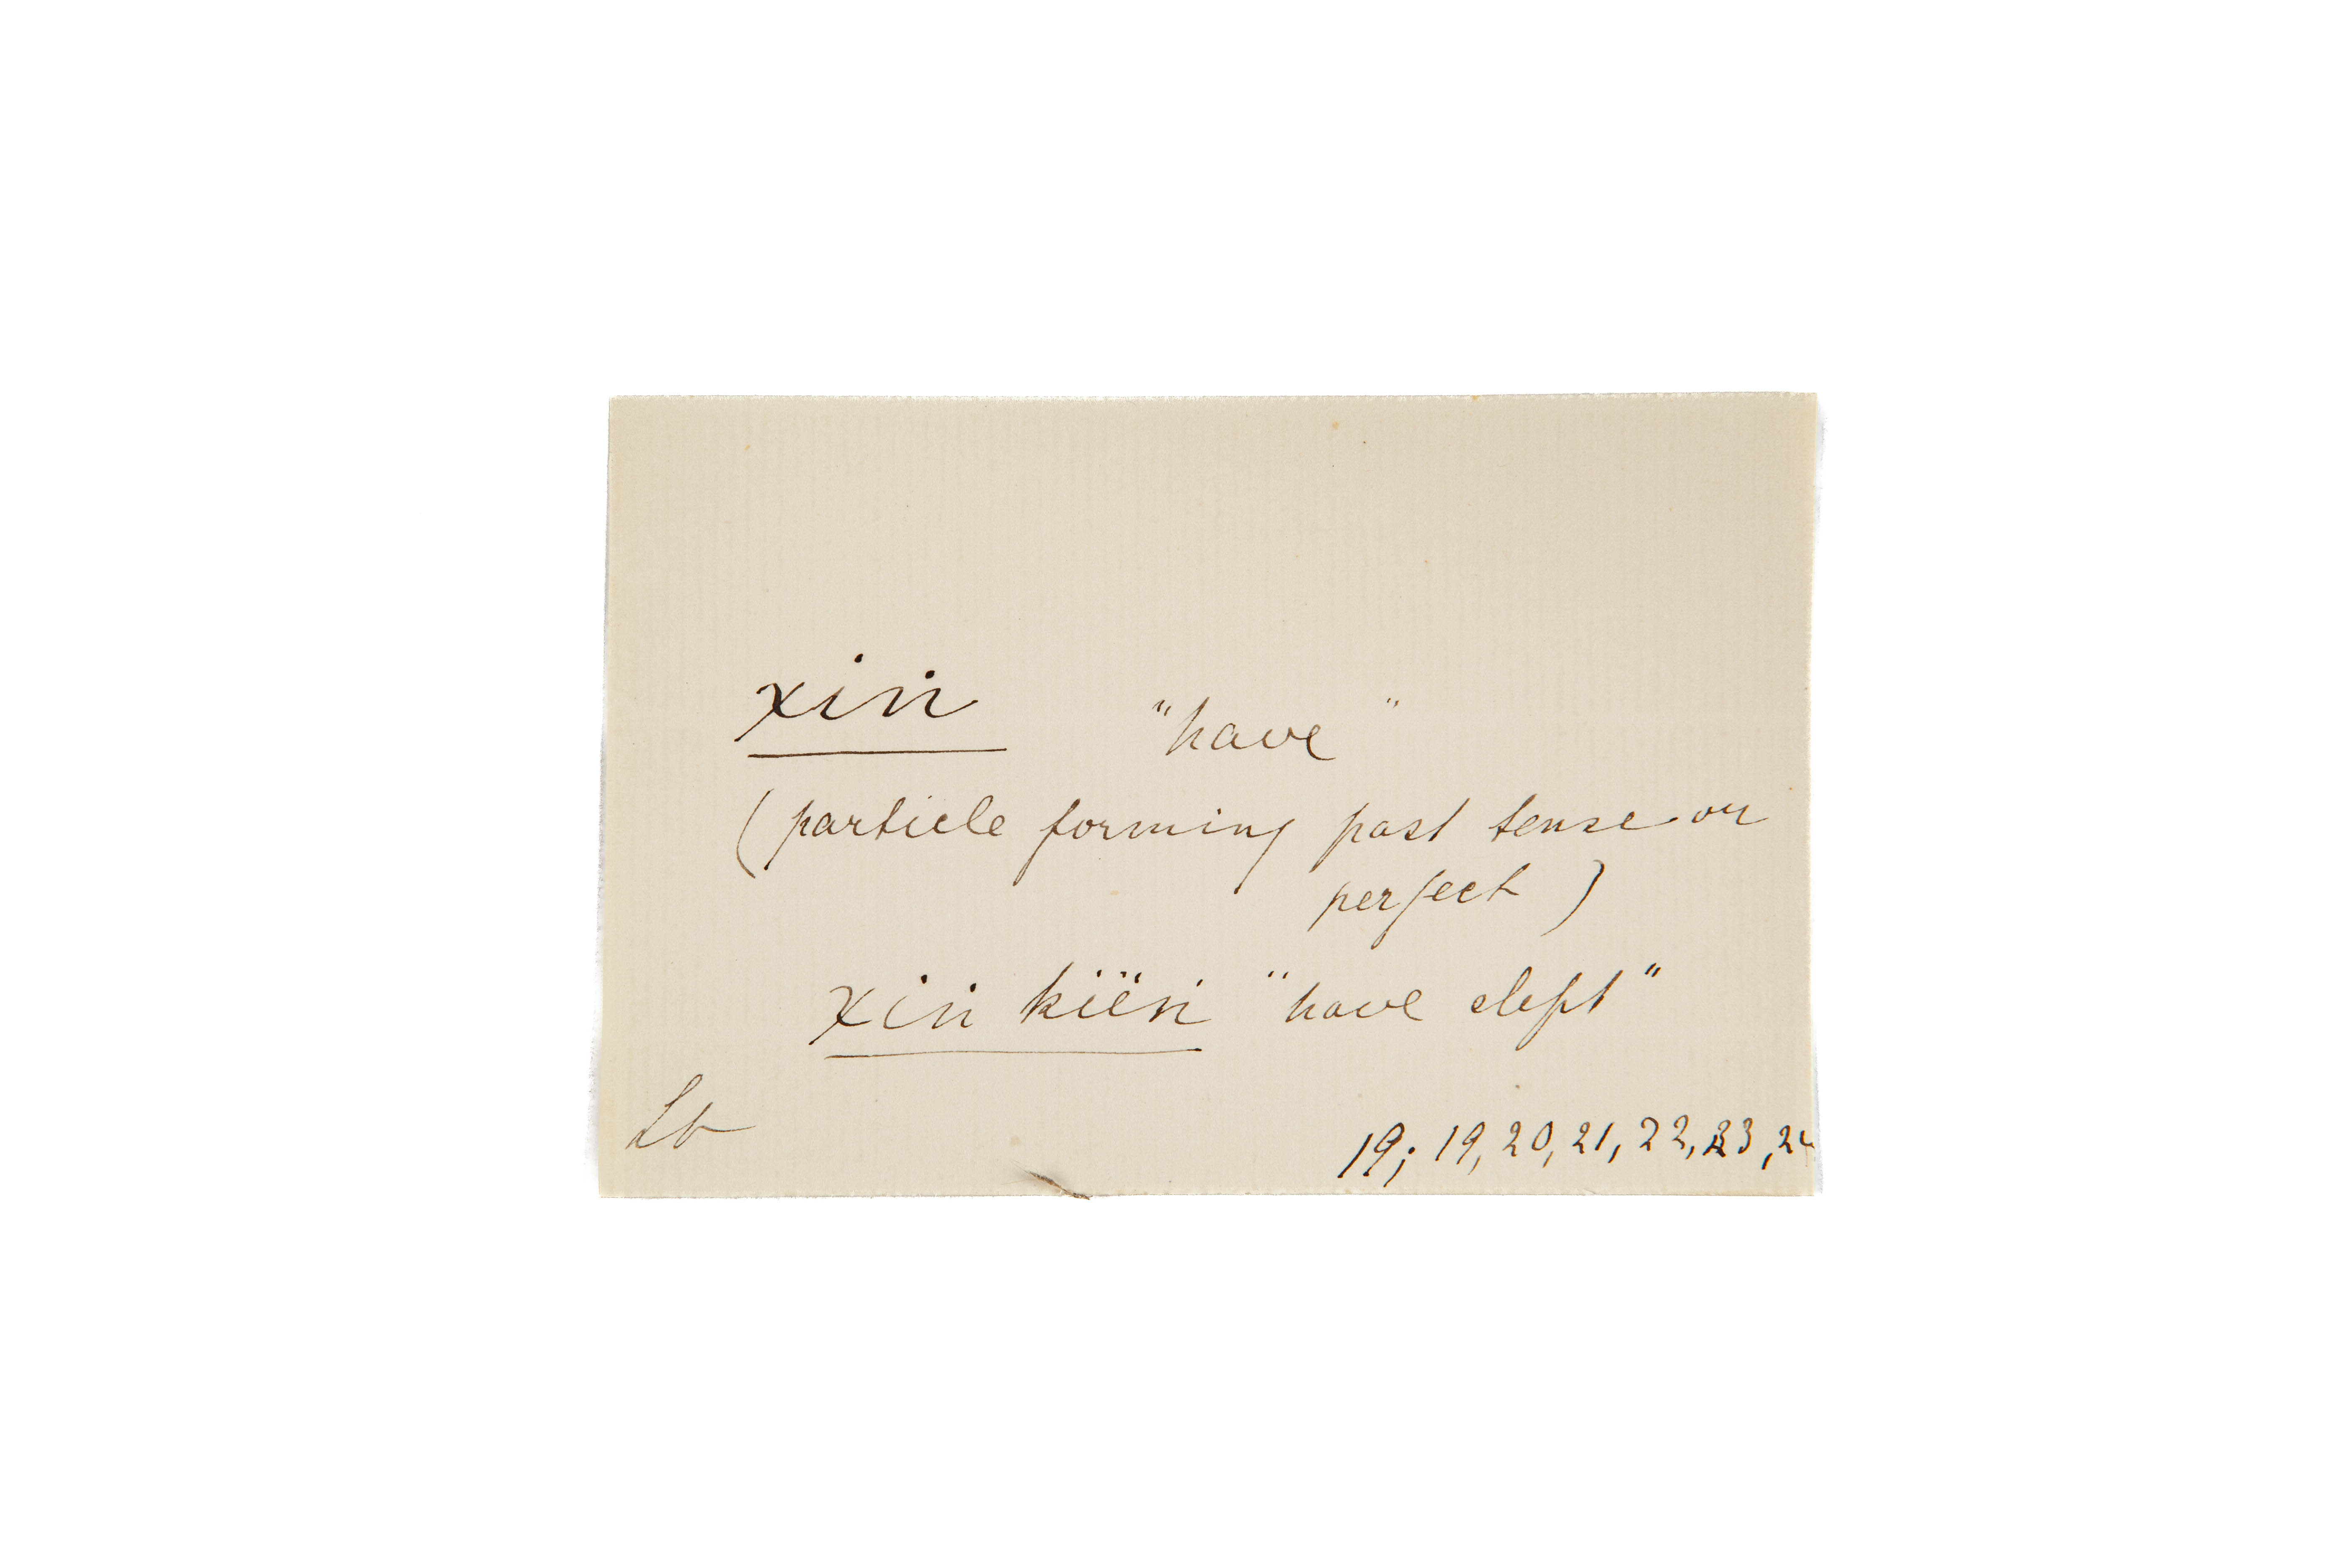 xiṅ "have"
(particle forming past tense or
perfect)
xiṅ kïëṅ "have slept"
Lb
19; 19, 20, 21, 22, 23, 24